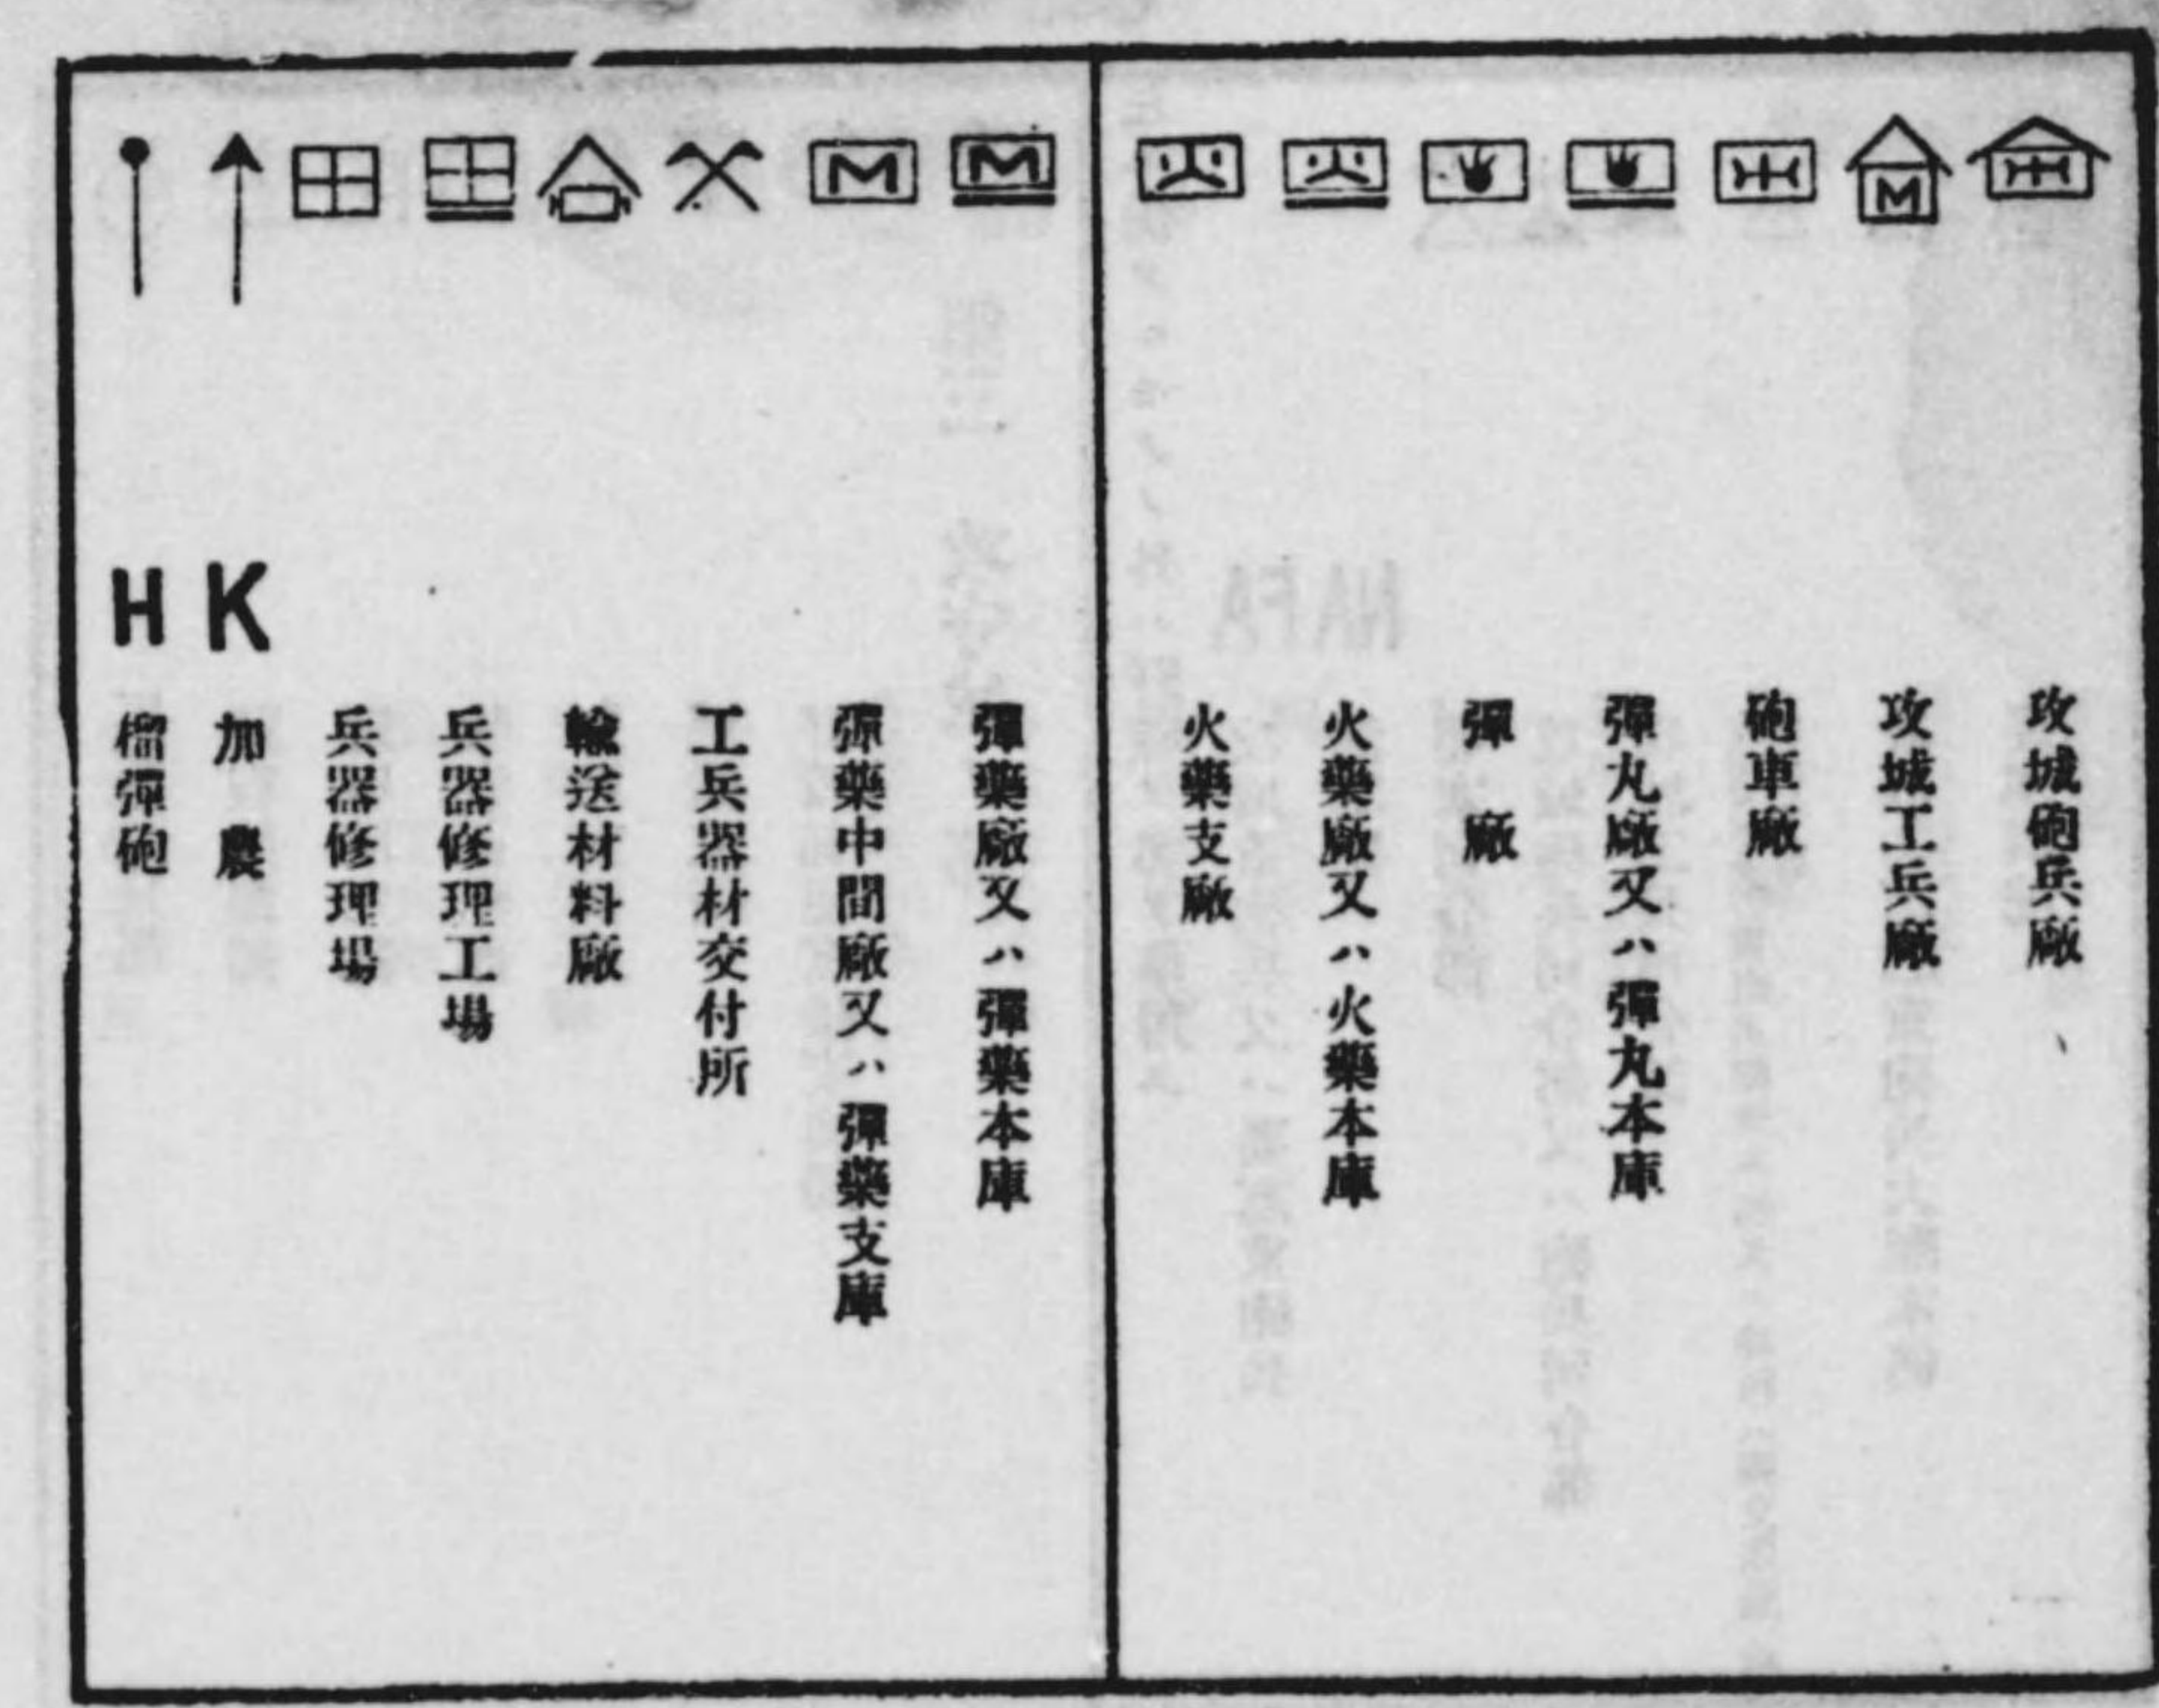 攻城砲兵廠
M 攻城工兵廠
砲車廠
彈丸廠又ハ彈丸本庫
彈廠
火 火藥廠又ハ火藥本庫
火 火藥支廠
M 彈藥廠又ハ彈藥本庫
M 彈藥中間廠又ハ彈藥支庫
工兵器材交付所
輸送材料廠
兵器修理工場
兵器修理場
K 加農
H 榴彈砲